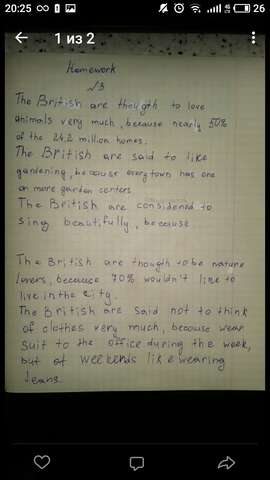 20:25
26
1 из 2
Homework
№3
The British are thougth to love
animals very much, because nearly 50%
of the 24.2 million homes.
The British are said to like
gardening, because everytown has one
or more garden centers
The British are considered to
sing beautifully, because
The British are thougth to be nature
lovers, because 70% wouldn't like to
live in the city.
The British are said not to think
of clothes very much, because wear
suit to the office during the week,
but at weekends like wearing
jeans.